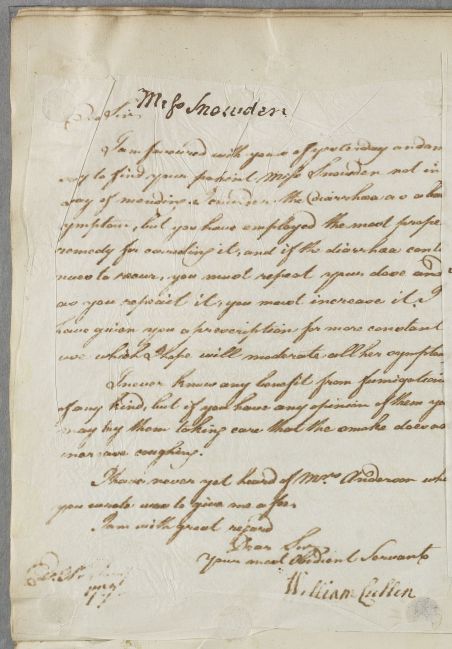 Miss Snowden
Dear Sir
I am favoured with yours of yesterday and am
sory to find your patient Miss Snowden not in
way of mending. I consider the Diarrhaea as a bad
symptom, but you have employed the most prope
remedy for correcting it, and if the diarrhaea conti
nues to recur, you must repeat your dose and
as you repeait it, you must increase it. I
have given you a prescription for more constant
use which I hope will moderate all her symptom
I never knew any benefit from fumigation
of any kind, but if you have any opinion of them yo
may try them taking care that the smoke does no
coughing.
I have never yet heard of Mrs. Anderson who
you wrote was to give me a fee
I am with great regard
Dear Sir
Your most Obedient Servant
William Cullen